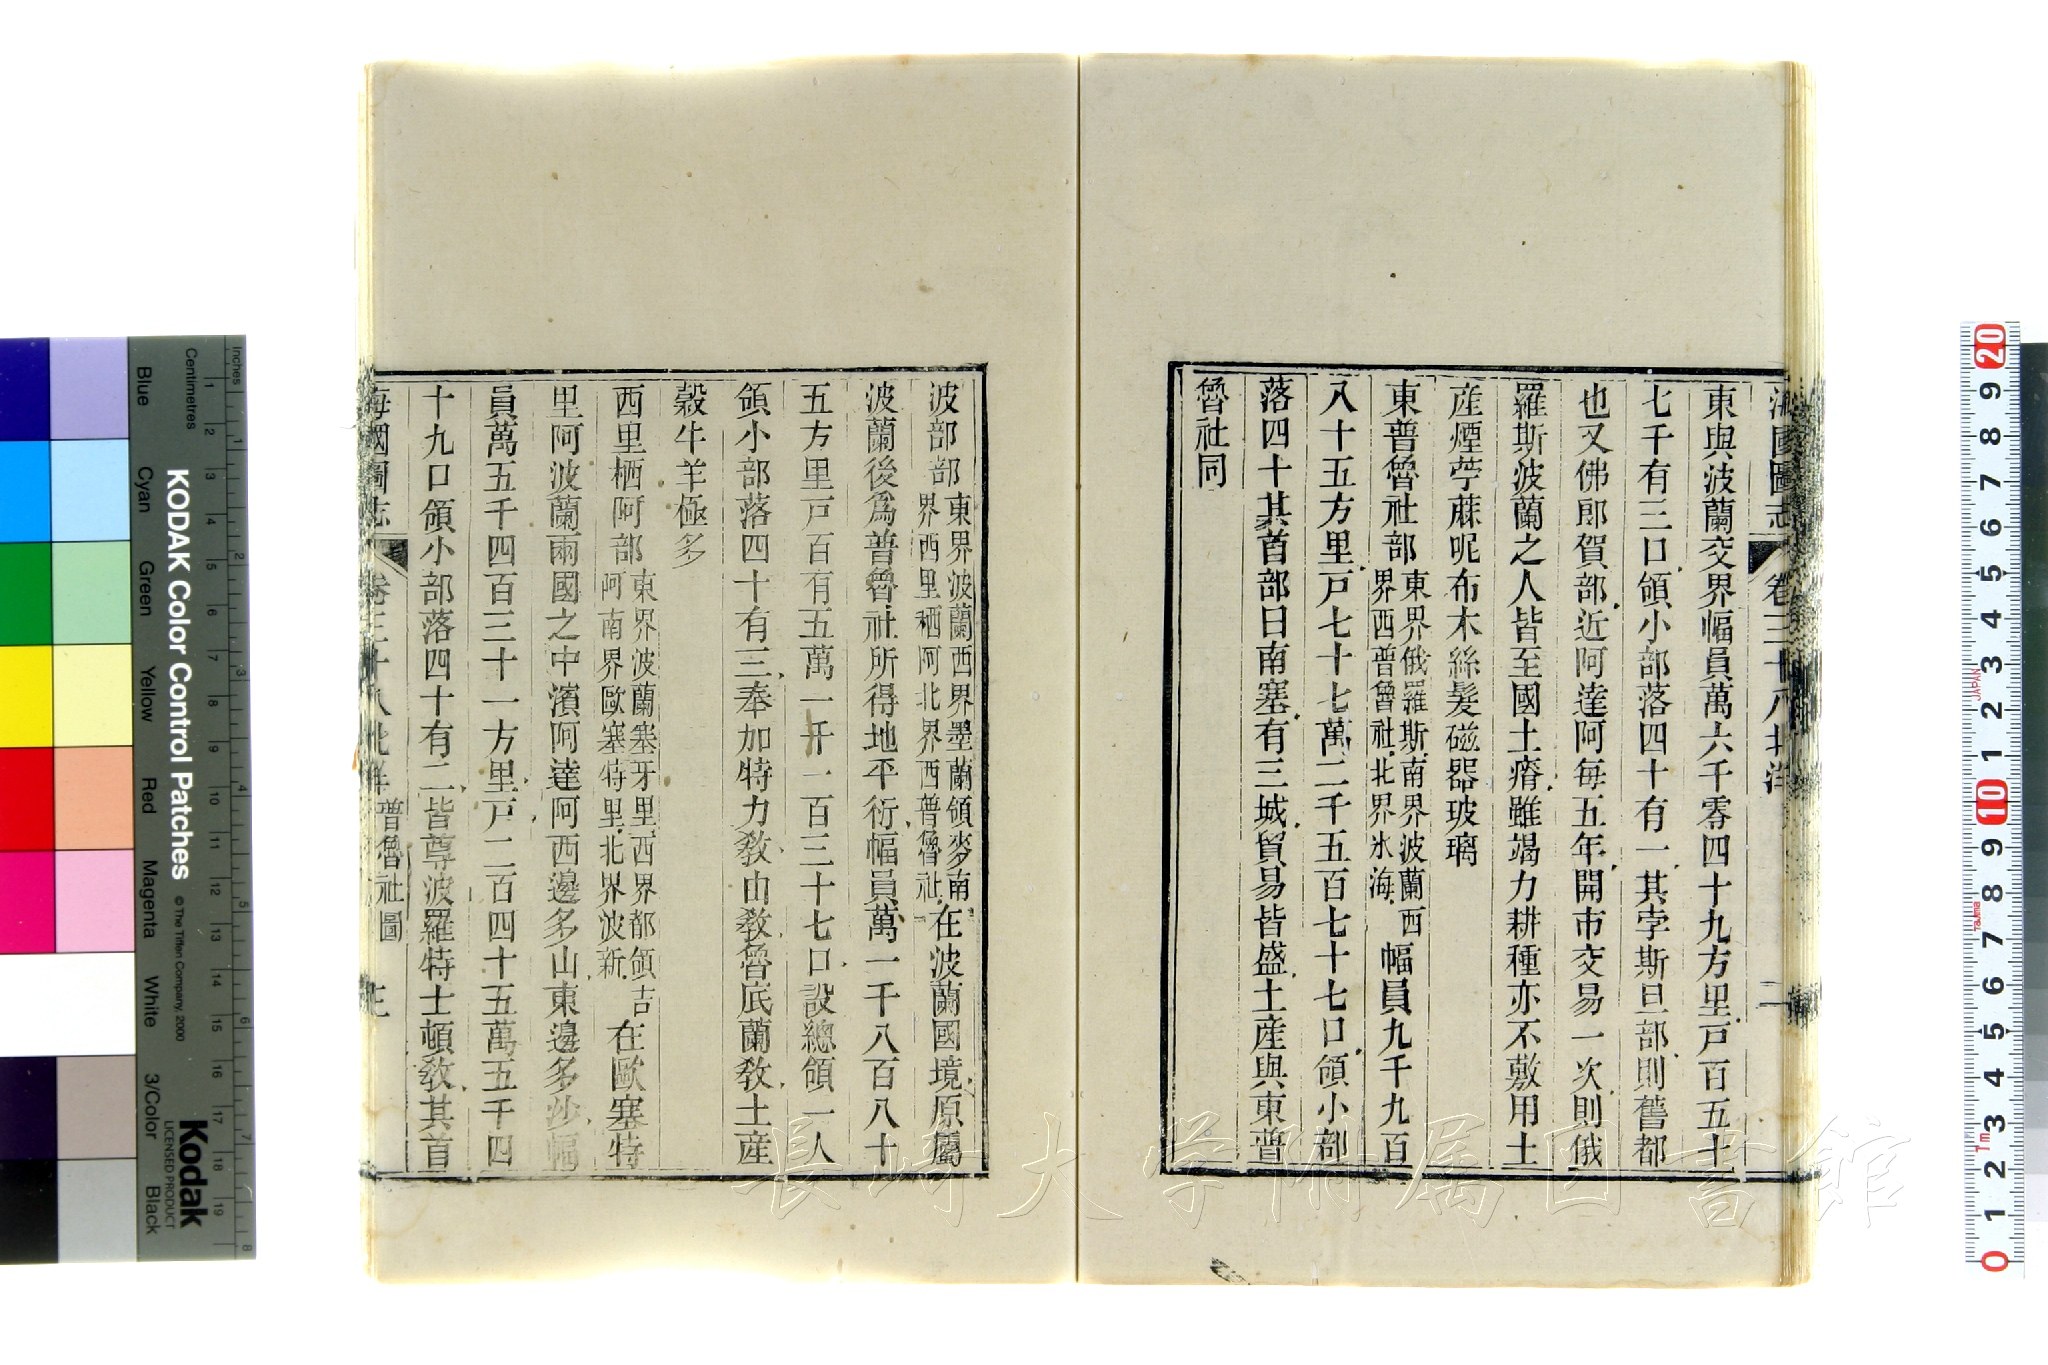 海國圖志 卷三十八北洋 二
東與波蘭交界幅員萬六千零四十九方里戶百五十
七千有三口領小部落四十有一其孛斯旦部則舊都
也又佛郎賀部近阿達阿每五年開市交易一次則俄
羅斯波蘭之人皆至國土瘠雖竭力耕種亦不敷用土
產煙苧蔴呢布木絲髮磁器玻璃
東普魯社部東界俄羅斯南界波蘭西界西普魯社北界氷海幅員九千九百
八十五方里戶七十七萬二千五百七十七口領小部
落四十其首部曰南塞有三城貿易皆盛土產與東普
魯社同
波部部東界波蘭西界墨蘭領麥南界西里栖阿北界西普魯社在波蘭國境原屬
波蘭後爲普魯社所得地平衍幅員萬一千八百八十
五方里戶百有五萬一千一百三十七口設總領一人
領小部落四十有三奉加特力敎由敎魯底蘭敎土產
穀牛羊極多
西里栖阿部東界波蘭塞牙里西界都領吉阿南界歐塞特里北界波新在歐塞特
里阿波蘭兩國之中濱阿達阿西邊多山東邊多沙幅
員萬五千四百三十一方里戶二百四十五萬五千四
十九口領小部落四十有二皆尊波羅特士頓敎其首
海國圖志 卷三十八北洋 普魯社國 三
長崎大学附属図書館
KODAK Color Control Patches
© The Tiffen Company, 2000
Kodak
LICENSED PRODUCT
Inches
Centimetres
Blue Cyan Green Yellow Red Magenta White 3/Color Black
JAPAN
Tajima